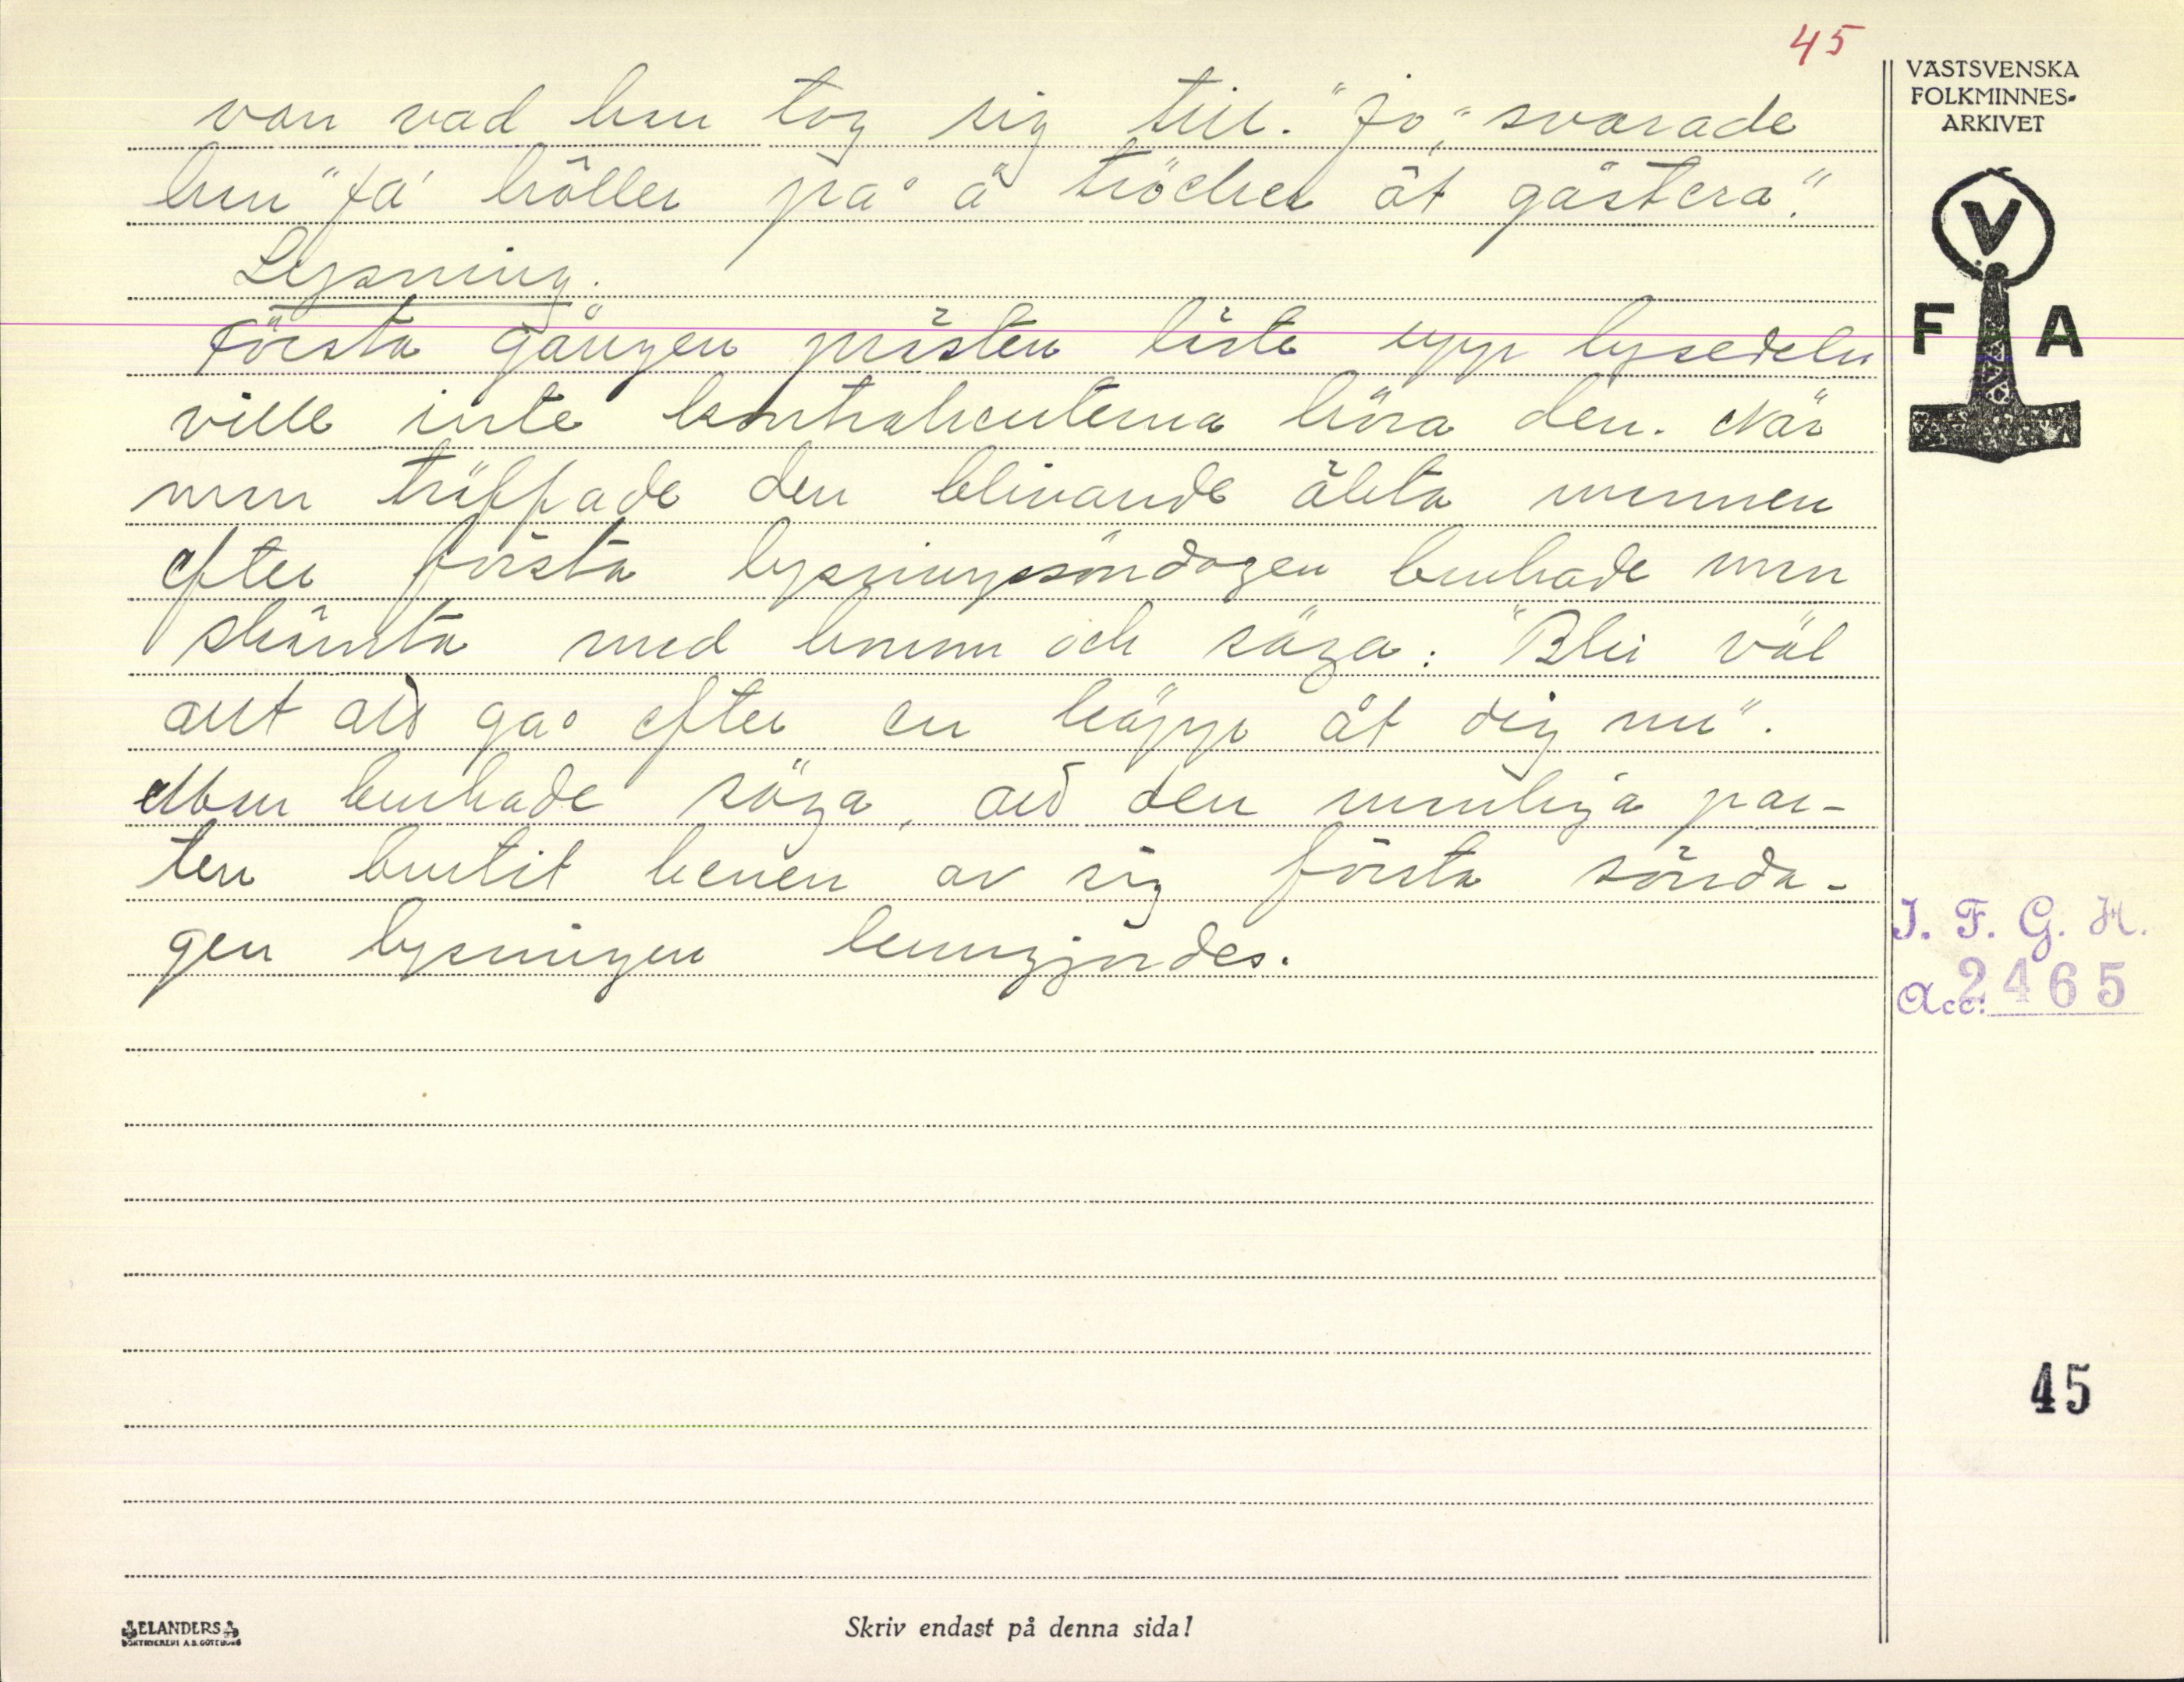 45
van vad hon tog sig till. "Jo", svarade
hon "ja' höller på å tröcker åt gästera".
Lysning.
Första gången prästen läste upp lysedeln
ville inte kontrahenterna höra den. När
man träffade den blivande äkta mannen
efter första lysningssöndagen brukade man
skämta med honom och säga: "Bli väl
att gå efter en käpp åt dig nu".
Man brukade säga, att den manliga par-
ten brutit benen av sig första sönda-
gen lysningen kungjordes.
VÄSTSVENSKA
FOLKMINNES-
ARKIVET
V
F A
I. F. G. H.
Acc: 2465
45
ELANDERS
BOKTRYCKERI A.B. GÖTEBORG
Skriv endast på denna sida!